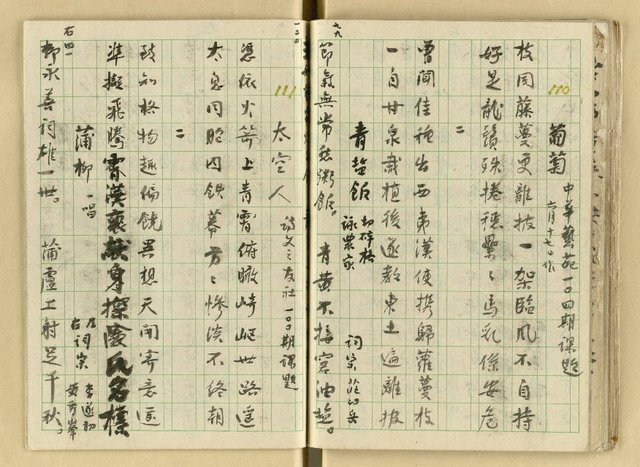 110
葡萄 中華藝苑一〇四期課題
六月十七日作
枝同藤蔓更離披一架臨風不自持
好是龍鬚殊捲穗纍々馬乳係安危
二
曾聞佳種出西夷漢使攜歸蘿蔓枝
一自甘泉栽植後遂教東土遍離披
青鹽飯 初碎格
詠農家 詞宗莊幼岳
節氣無常愁粥飯。青黃不接窘油鹽。
七九
一二〇
111
太空人 詩文之友社一〇〇期課題
憑依火箭上青霄俯瞰崎嶇世路遙
太息同胞囚鐵幕方々慘淡不終朝
二
致知格物趣偏饒異想天開寄意遥
準擬飛騰霄漢裏獻身探險氏名標
蒲柳 一唱
左詞宗 李遂初
右 黃秀峯
柳永善詞雄一世。蒲盧工射足千秋。
右四一